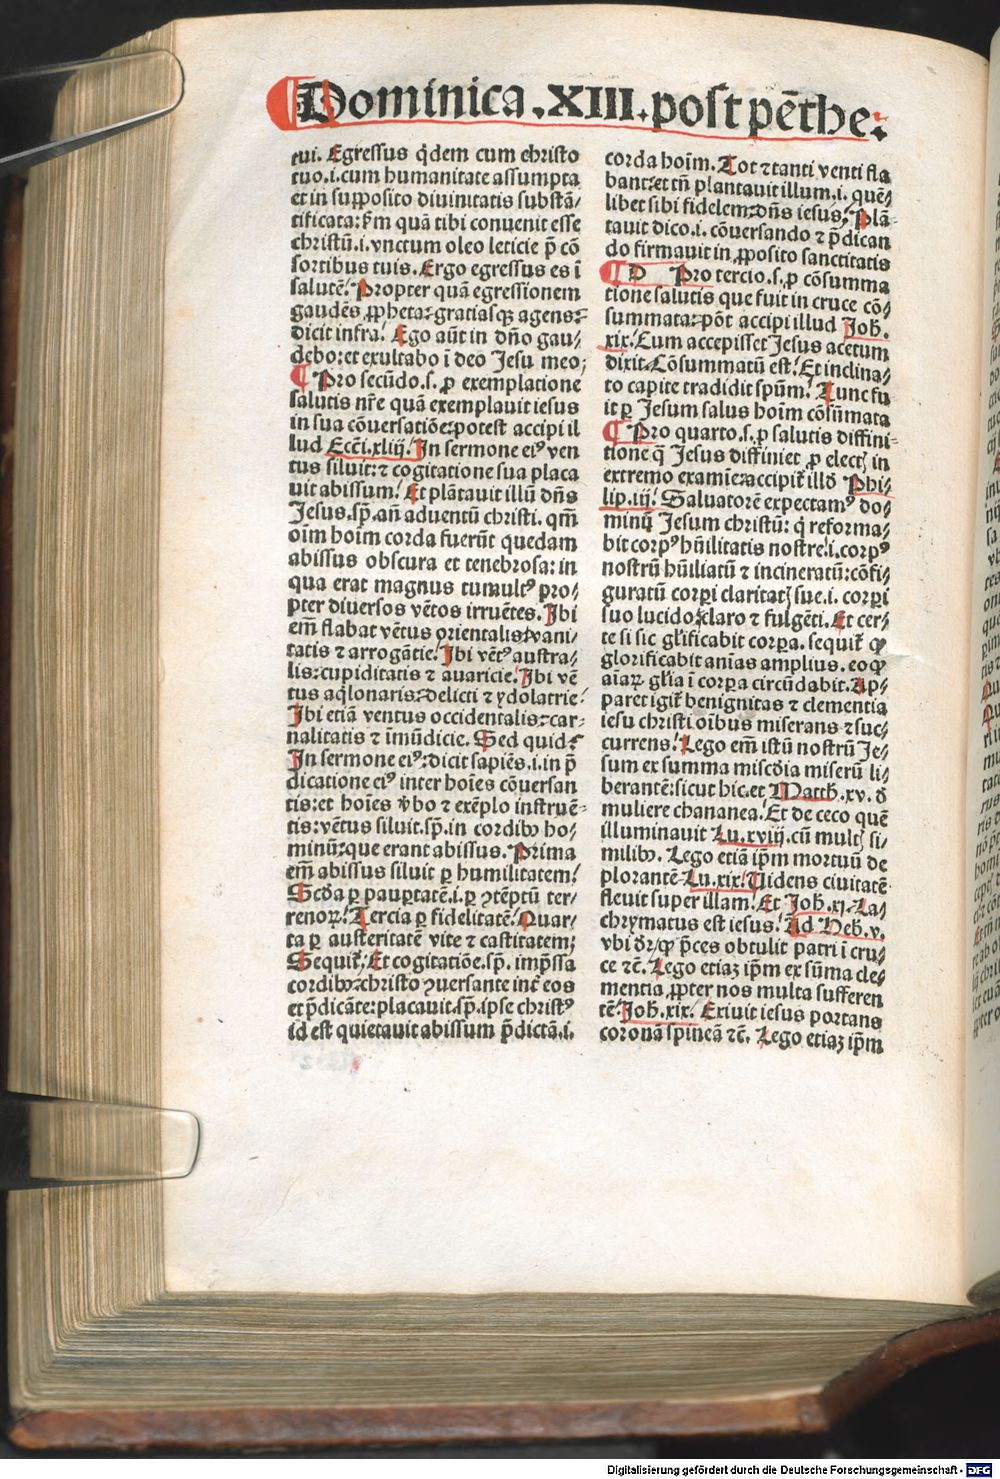 Dominica .XIII. post pēthe:
tui. Egressus q̇dem cum christo
tuo.i.cum humanitate assumpta
et in supposito diuinitatis substā/
tificata: km̄ quā tibi conuenit esse
christū.i.vnctum oleo leticie p̄ cō
sortibus tuis. Ergo egressus es ī
salutē. Propter quā egressionem
gaudēs ꝓpheta: gratiasqꝫ agens:
dicit infra. Ego aūt in dn̄o gau/
debo: et exultabo ī deo Jesu meo;
¶ Pro secūdo.s. ꝓ exemplatione
salutis nr̄e quā exemplauit iesus
in sua cōuersatiōe: potest accipi il
lud Ecc̄i.xliij. In sermone eiꝰ ven
tus siluit: ⁊ cogitatione sua placa
uit abissum. Et plātauit illū dn̄s
Jesus.sp̄.an̄ aduentū christi. qm̄
oīm hoīm corda fuerūt quedam
abissus obscura et tenebrosa: in
qua erat magnus tumultꝰ pro/
pter diuersos vētos irruētes. Ibi
em̄ flabat vētus orientalis: vani/
tatis ⁊ arrogātie. Ibi vētꝰ austra/
lis: cupiditatis ⁊ auaricie. Ibi vē
tus aq̇lonaris: delicti ⁊ ydolatrie
Ibi etiā ventus occidentalis: car/
nalitatis ⁊ īmūdicie. Sed quid?
In sermone eiꝰ: dicit sapiēs.i. in p̄
dicatione eiꝰ inter hoīes cōuersan
tis: et hoīes v̄bo ⁊ exēplo instruē/
tis: vētus siluit.sp̄. in cordibꝰ ho/
minū: que erant abissus. Prima
em̄ abissus siluit ꝑ humilitatem.
Scd̄a ꝑ pauꝑtatē.i. ꝑ ꝯtēptū ter/
renoꝝ. Tercia ꝑ fidelitatē. Quar/
ta ꝑ austeritatē vite ⁊ castitatem;
Sequit̄. Et cogitatiōe.sp̄. imp̄ssa
cordibꝰ: christo ꝯuersante int̄ eos
et p̄dicāte: placauit.sp̄. ipse christꝰ
id est quietauit abissum p̄dictā.i.
corda hoīm. Tot ⁊ tanti venti fla
bant: et tn̄ plantauit illum.i. quē/
libet sibi fidelem: dn̄s iesus. Plā-
tauit dico.i. cōuersando ⁊ p̄dican
do firmauit in ꝓposito sanctitatis
¶ D Pro tercio.s. ꝓ cōsumma
tione salutis que fuit in cruce cō/
summata: pōt accipi illud Joh̄.
xix. Cum accepisset Jesus acetum
dixit: Cōsummatū est. Et inclina/
to capite tradidit spūm. Tunc fu
it ꝑ Jesum salus hoīm cōsūmata
¶ Pro quarto.s. ꝓ salutis diffini-
tione q̄ Jesus diffiniet ꝓ electꝭ in
extremo examīe: accipit̄ illd̄ Phi
lip.iij. Saluatorē expectamꝰ do/
minū Jesum christū: q̇ reforma/
bit corpꝰ hūilitatis nostre.i. corpꝰ
nostrū hūiliatū ⁊ incineratū: cōfi/
guratū corꝑi claritatꝭ sue.i. corꝑi
suo lucido: claro ⁊ fulgēti. Et cer/
te si sic gl̄ificabit corꝑa. sequit̄ ꝙ
glorificabit anīas amplius. eo ꝙ
aīaꝝ gl̄ia ī corꝑa circūdabit. Ap/
paret igit̄ benignitas ⁊ clementia
iesu christi oībus miserans ⁊ suc/
currens. Lego em̄ istū nostrū Je/
sum ex summa misc̄dia miserū li/
berantē: sicut hic. et Matth̄.xv. d̄
muliere chananea. Et de ceco quē
illuminauit Lu.xviij. cū multꝭ si/
milibꝰ. Lego etiā ip̄m mortuū de
plorantē Lu.xix. Uidens ciuitatē
fleuit super illam. Et Joh̄.xj. La/
chrymatus est iesus. Ad Heb̄.v.
vbi d̄r/ ꝙ p̄ces obtulit patri ī cru/
ce ⁊c̄. Lego etiaꝫ ip̄m ex sūma cle/
mentia ꝓpter nos multa sufferen
tē. Joh̄.xix. Exiuit iesus portans
coronā spineā ⁊c̄. Lego etiaꝫ ip̄m
Digitalisierung gefördert durch die Deutsche Forschungsgemeinschaft - DFG